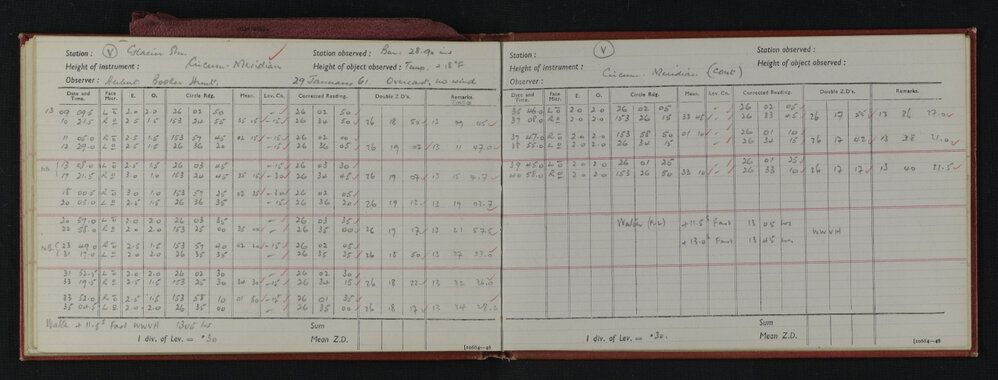 Station : V Glacier Stn Station observed : Bar. 28.90 ins
Height of instrument : Circum-Meridian Height of object observed : Temp. +18°F
Observer : Booker Hunt. 29 January 61 Overcast, no wind
Date and Time. Face Micr. E. O. Circle Rdg. Mean. Lev. Co. Corrected Reading. Double Z.D's. Remarks.
13 09 09.5 L 2.0 2.0 26 02 50 26 02 50
10 21.5 R 2.5 1.5 153 24 55 35 15 -15 26 34 50 26 18 50 13 09 45
11 05.0 R 2.5 1.5 153 59 45 02 15 -15 26 02 00
12 29.0 L 2.5 1.5 26 36 20 -15 26 36 05 26 19 02 13 11 47.0
NB 13 28.0 L 2.5 1.5 26 03 45 -15 26 03 30
19 21.5 R 3.0 1.0 153 24 45 35 15 -30 26 34 45 26 19 07 13 15
18 00.5 R 3.0 1.0 153 59 25 02 35 -30 26 02 05
20 05.0 L 2.5 1.5 26 36 35 -15 26 36 20 26 19 12 13 19 03.7
20 59.0 L 2.0 2.0 26 03 35 26 03 35
22 58.0 R 2.0 2.0 153 25 00 35 00 26 35 00 26 19 17 13 21 57.5
NB 23 49.0 R 2.5 1.5 153 59 40 02 20 -15 26 02 05
31 19.0 L 2.0 2.0 26 35 35 26 35 35 26 18 50 13 27 33.0
31 52.5 L 2.0 2.0 26 02 30 26 02 30
33 19.5 R 2.5 1.5 153 25 30 34 30 -15 26 34 15 26 18 22 13 32 36.0
33 52.0 R 2.5 1.5 153 58 10 01 50 -15 26 01 35
35 04.5 L 2.0 2.0 26 35 00 26 35 00 26 18 17 13 34 28.2
Watch +11.5s Fast WWVH 1305 hrs Sum
1 div. of Lev. = .30 Mean Z.D.
[10664—48
Station : V Station observed :
Height of instrument : Circum-Meridian (Cont) Height of object observed :
Observer :
Date and Time. Face Micr. E. O. Circle Rdg. Mean. Lev. Co. Corrected Reading. Double Z.D's. Remarks.
35 46.0 L 2.0 2.0 26 02 05 26 02 05
37 08.0 R 2.0 2.0 153 26 15 33 45 26 33 45 26 17 55 13 36 27.0
37 47.0 R 2.0 2.0 153 58 50 01 10 26 01 10
38 55.0 L 2.0 2.0 26 34 15 26 34 15 26 17 42 13 38 21.0
39 45.0 L 2.0 2.0 26 01 25 26 01 25
40 58.0 R 2.0 2.0 153 26 50 33 10 26 33 10 26 17 17 13 40 21.5
Watch +11.5s Fast 13 05 hrs
+13.0s Fast 13 45 hrs WWVH
Sum
1 div. of Lev. = .30 Mean Z.D.
[10664—48